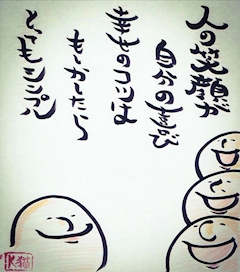 人の笑顔が
自分の喜び
幸せのコツは
もしかしたら
とってもシンプル
K猫